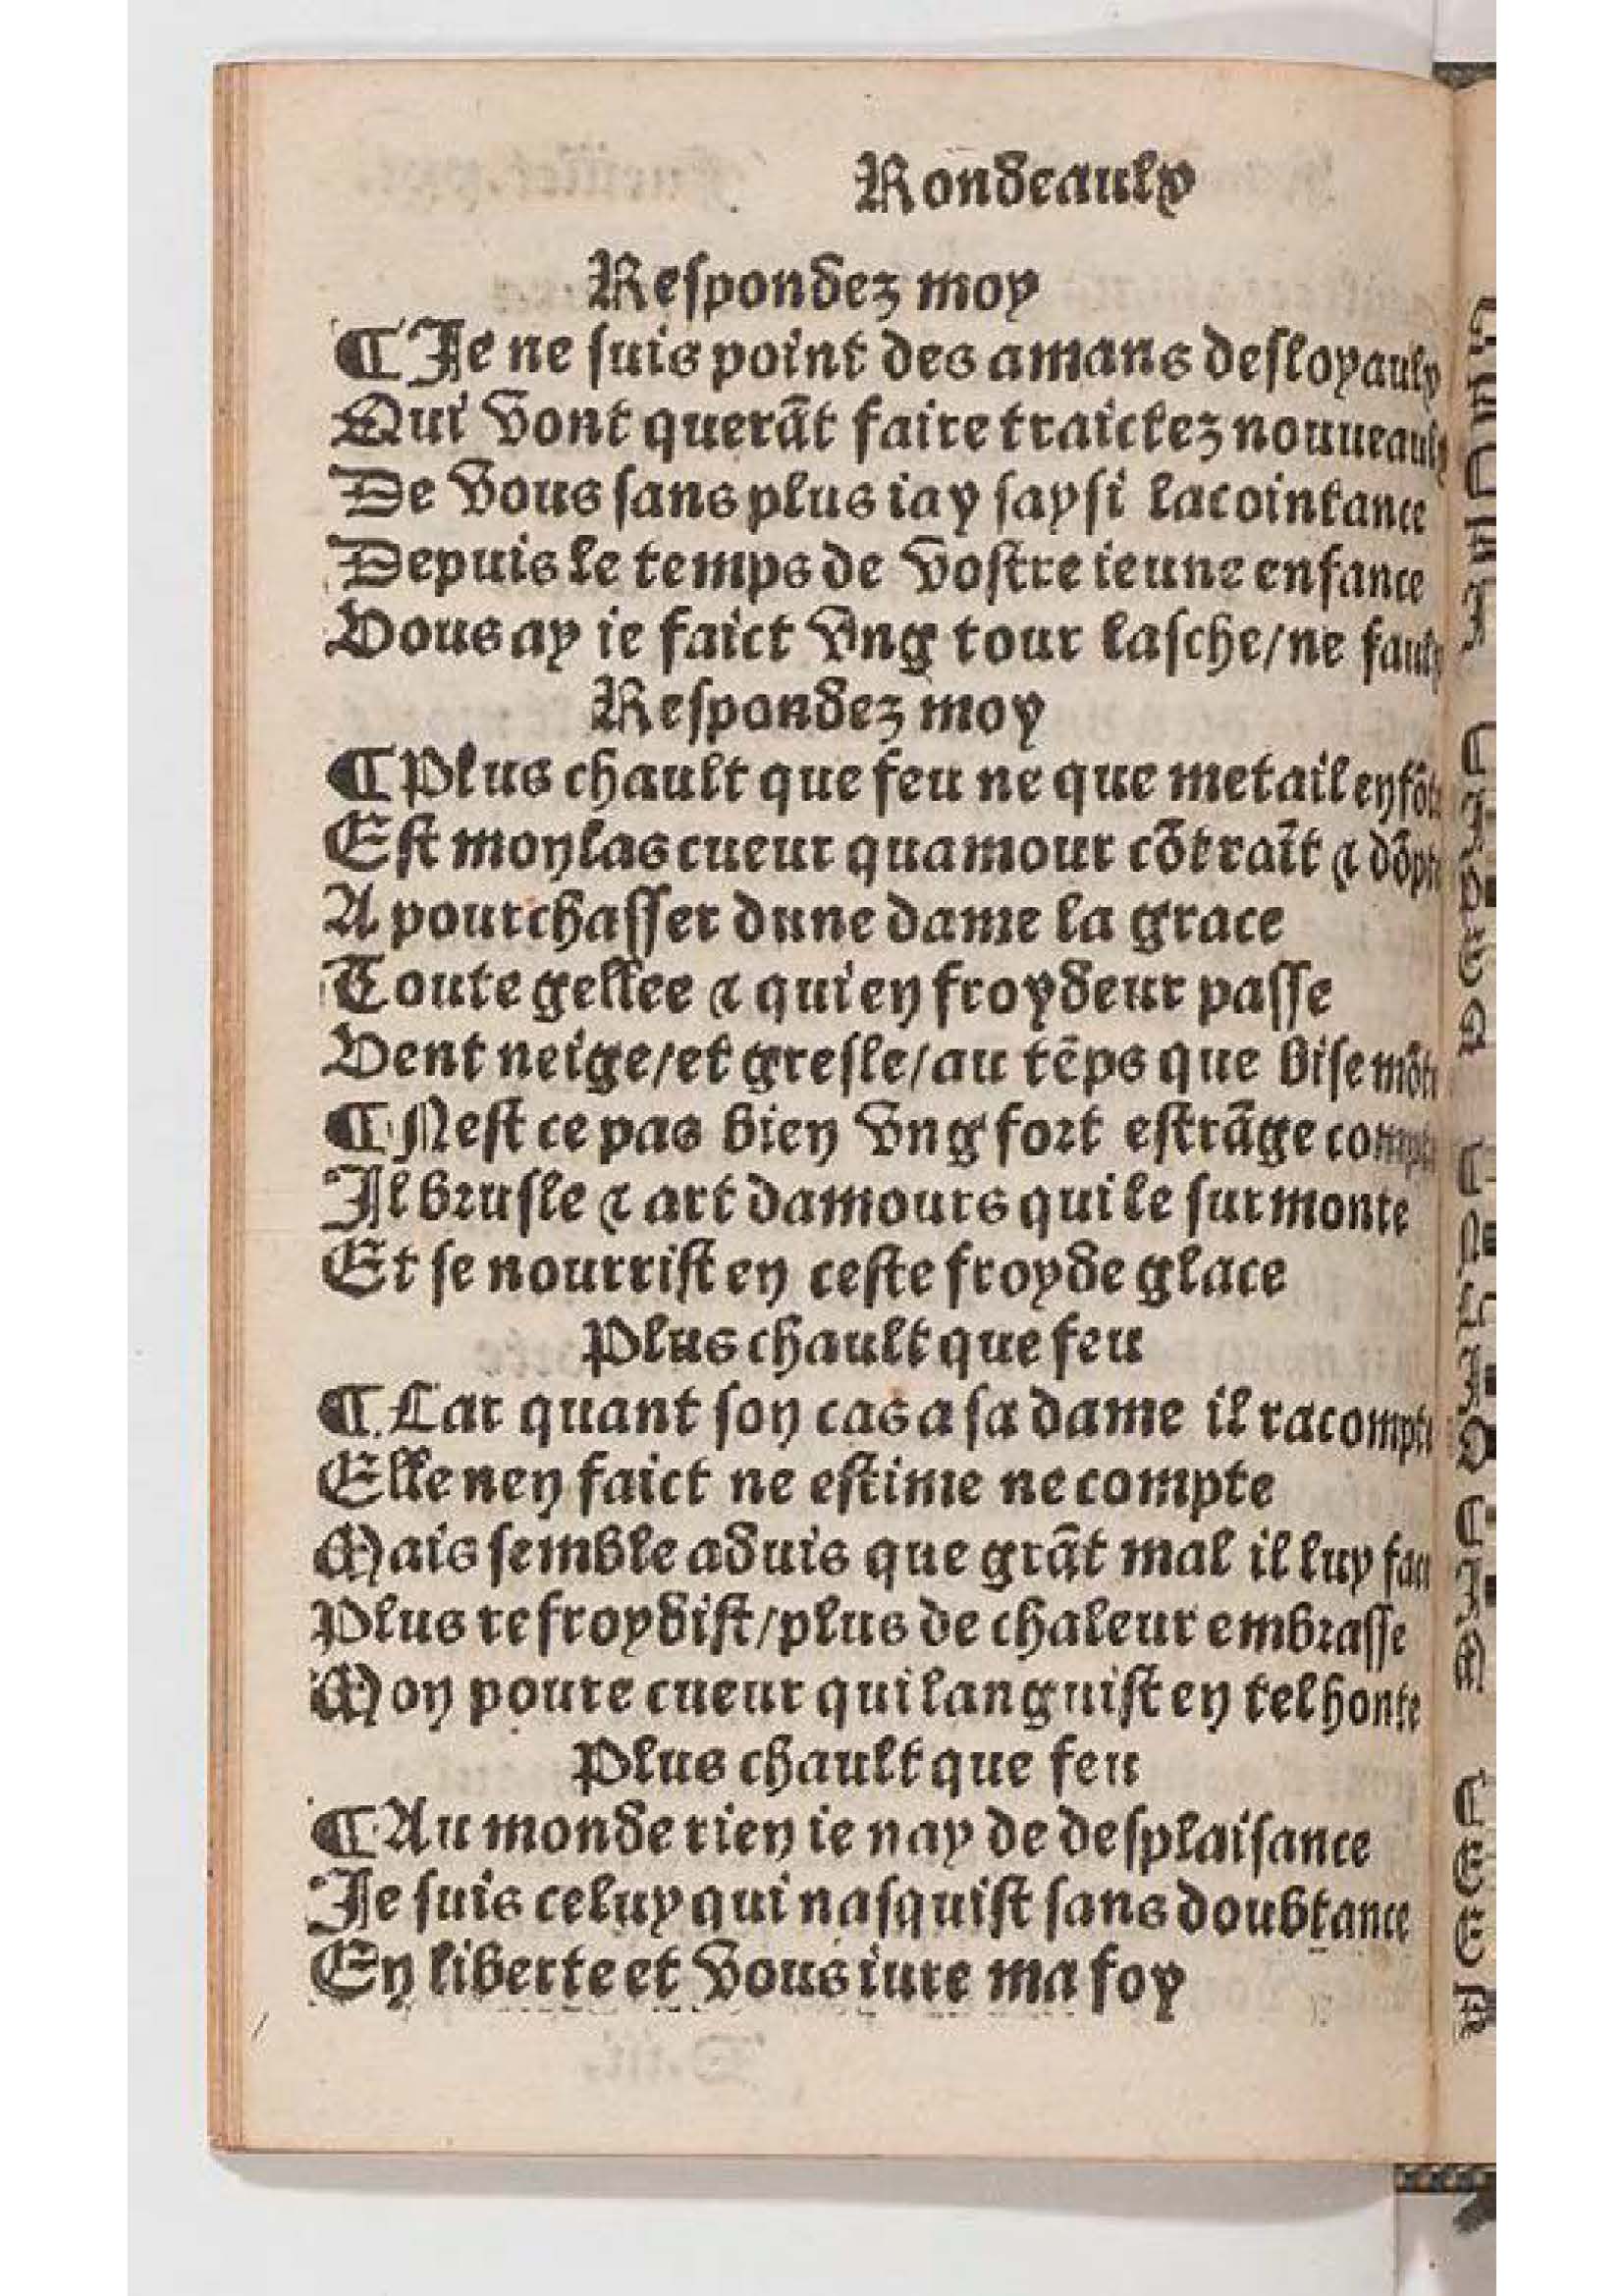 Rondeaulx
Respondez moy
¶ Je ne suis point des amans desloyaulx
Qui vont querãt faire traictez nouueaulx
De vous sans plus iay saysi lacointance
Depuis le temps de vostre ieune enfance
Vous ay ie faict vng tour lasche/ne faulx
Respondez moy
¶ Plus chault que feu ne que metail en
Est mon las cueur quamour cõtraĩt & dõpte
A pourchasser dune dame la grace
Toute gellee & qui en froydeur passe
Vent neige/et gresle/au tẽps que bise mõte
¶ Nest ce pas bien vng fort estrãge compte
Il brusle & art damours qui le surmonte
Et se nourrist en ceste froyde glace
Plus chault que feu
¶ Car quant son cas a sa dame il racompte
Elle nen faict ne estime ne compte
Mais semble aduis que grãt mal il luy face
Plus refroydist/plus de chaleur embrasse
Mon poure cueur qui languist en tel honte
Plus chault que feu
¶ Au monde rien ie nay de desplaisance
Je suis celuy qui nasquist sans doubtance
En liberte et vous iure ma foy